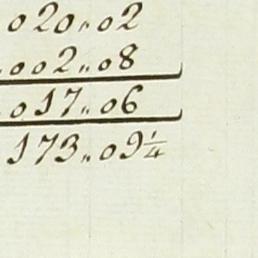 020„02
002„08
017„06
173„09¼